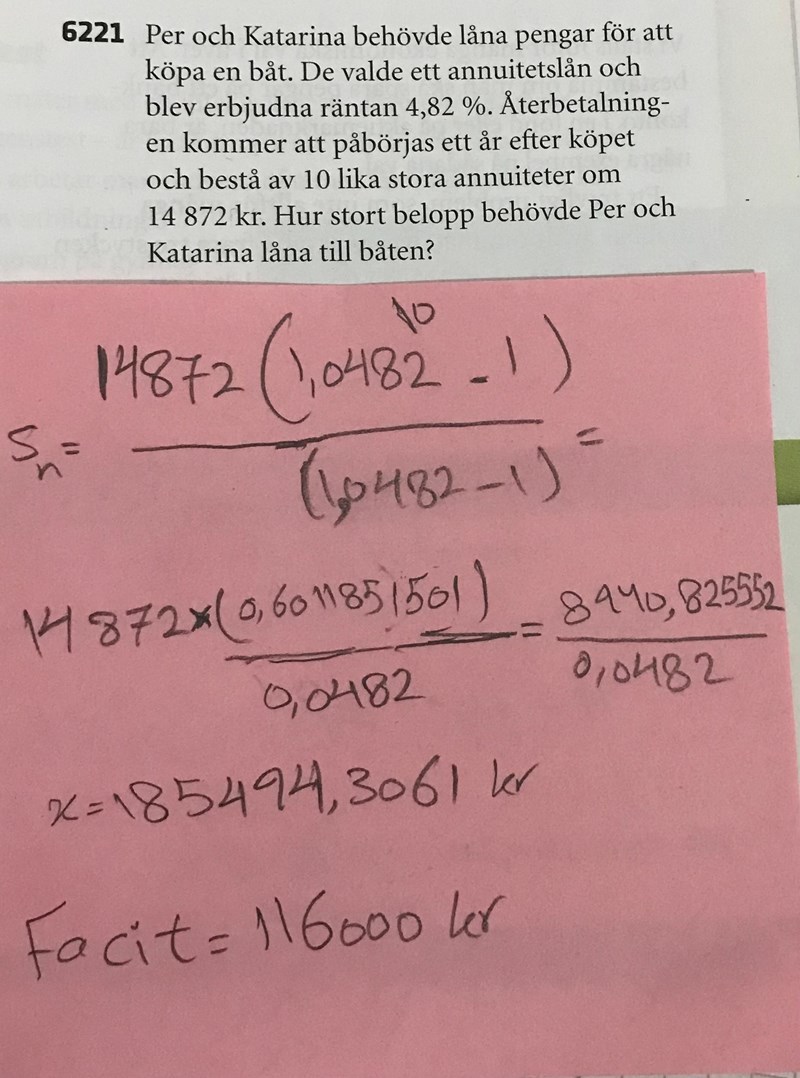 6221 Per och Katarina behövde låna pengar för att
köpa en båt. De valde ett annuitetslån och
blev erbjudna räntan 4,82 %. Återbetalning-
en kommer att påbörjas ett år efter köpet
och bestå av 10 lika stora annuiteter om
14 872 kr. Hur stort belopp behövde Per och
Katarina låna till båten?
10
14872 (1,0482 - 1)
Sn = =
(1,0482 - 1)
14872 x (0,6011851501) = 8940,825552
0,0482 0,0482
x = 185494,3061 kr
Facit = 116000 kr